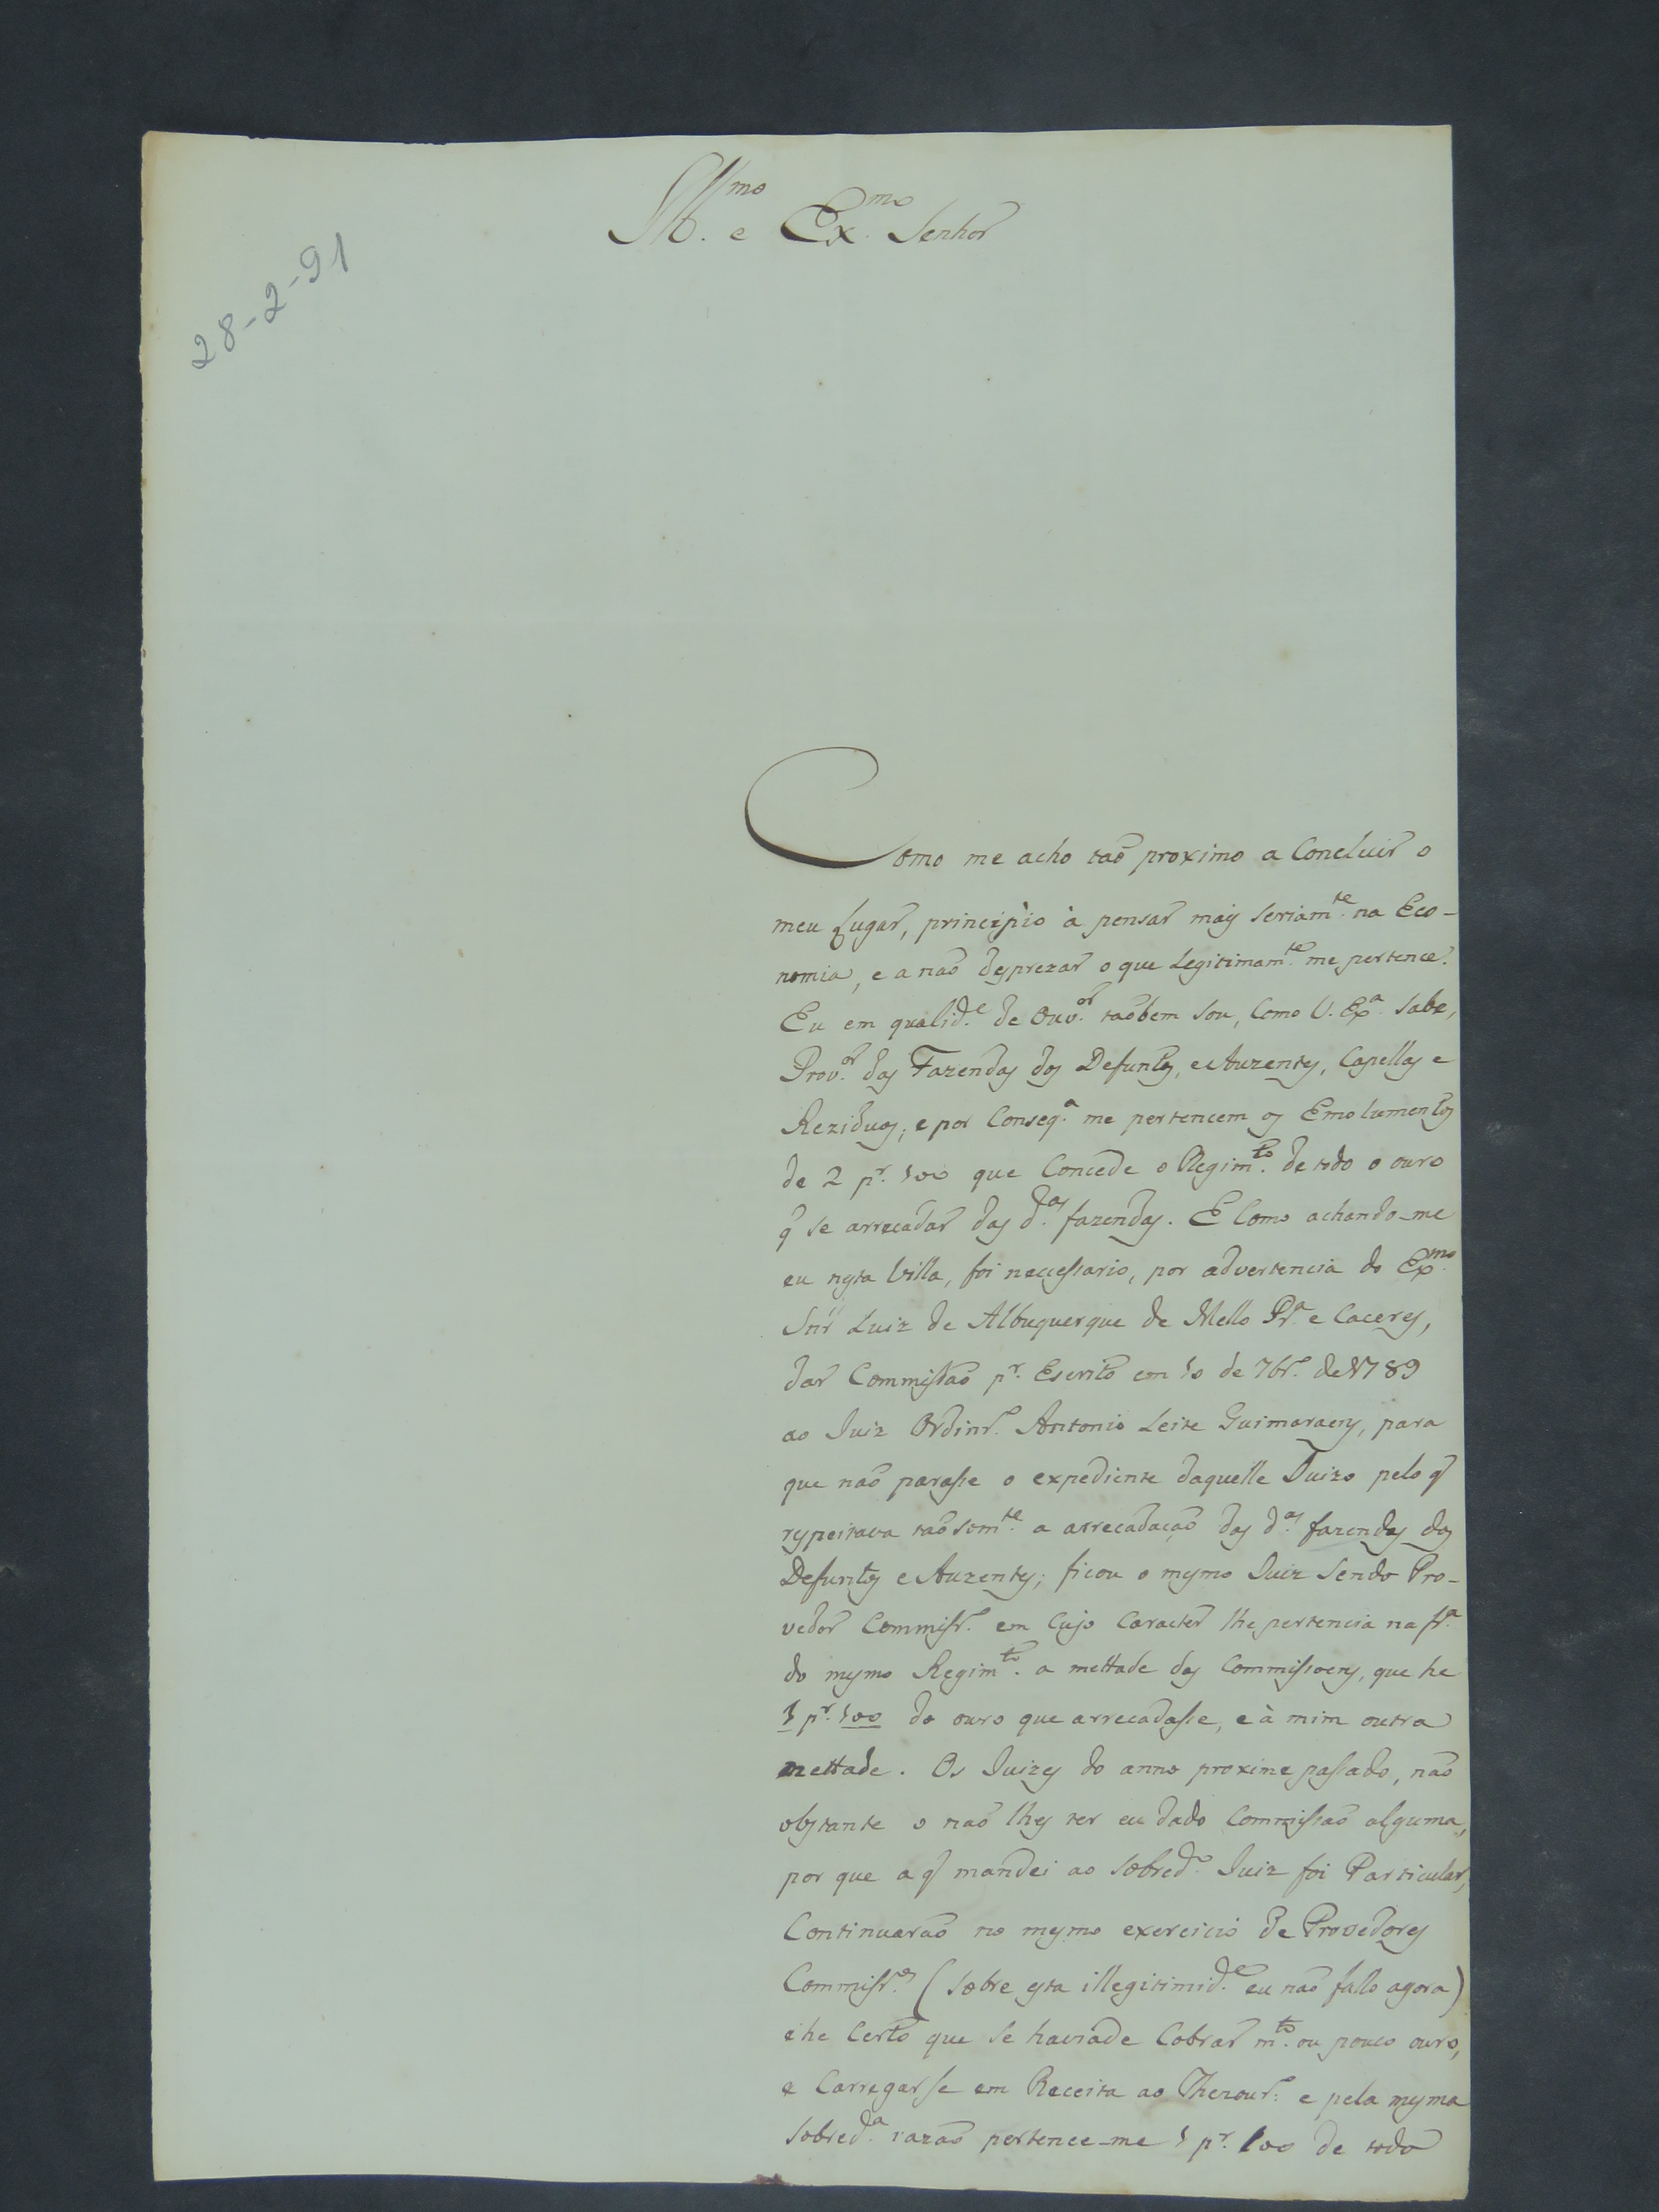 Ill.mo e Ex.mo Senhor
28-2-91
Como me acho taõ proximo a Concluir o
meu Lugar, principio à pensar mais seriam.te na Eco-
nomia, e a naõ desprezar o que legitimam.te me pertence.
Eu em qualid.e de Ouv.or taõbem sou, Como V. Ex.a sabe,
Prov.or das Fazendas dos Defuntos, e Auzentes, Capellas e
Reziduos; e por Conseq.a me pertencem os Emolumentos
de 2 p.r 100 que Concede o Regim.to de todo o ouro
q̃ se arrecadar das d.as fazendas. E Como achando-me
eu nesta Villa, foi necessario, por advertencia do Ex.mo
Sñr Luiz de Albuquerque de Mello Pr.a e Caceres,
dar Commissaõ p.r Escrito em 10 de 7br.o de 1789
ao Juiz Ordinr.o Antonio Leite Guimaraens, para
que naõ parasse o expediente daquelle Juizo pelo q̃
respeitava taõsom.te a arrecadaçaõ das d.as fazendas dos
Defuntos e Auzentes; ficou o mesmo Juiz sendo Pro-
vedor Commissr.o em Cujo Caracter lhe pertencia na fr.a
do mesmo Regim.to a mettade das Commissoens, que he
1 p.r 100 do ouro que arrecadasse, e à mim outra
mettade. Os Juizes do anno proximo passado, naõ
obstante o naõ lhes ter eu dado Commissaõ alguma,
por que a q̃ mandei ao sobred.o Juiz foi Particular,
Continuaraõ no mesmo exercicio de Provedores
Commissr.os (sobre esta illegitimid.e eu naõ fallo agora)
e he Certo que se haviade Cobrar m.to ou pouco ouro,
e Carregarse em Receita ao Thezour.o e pela mesma
sobred.a razaõ pertence-me 1 p.r 100 de todo